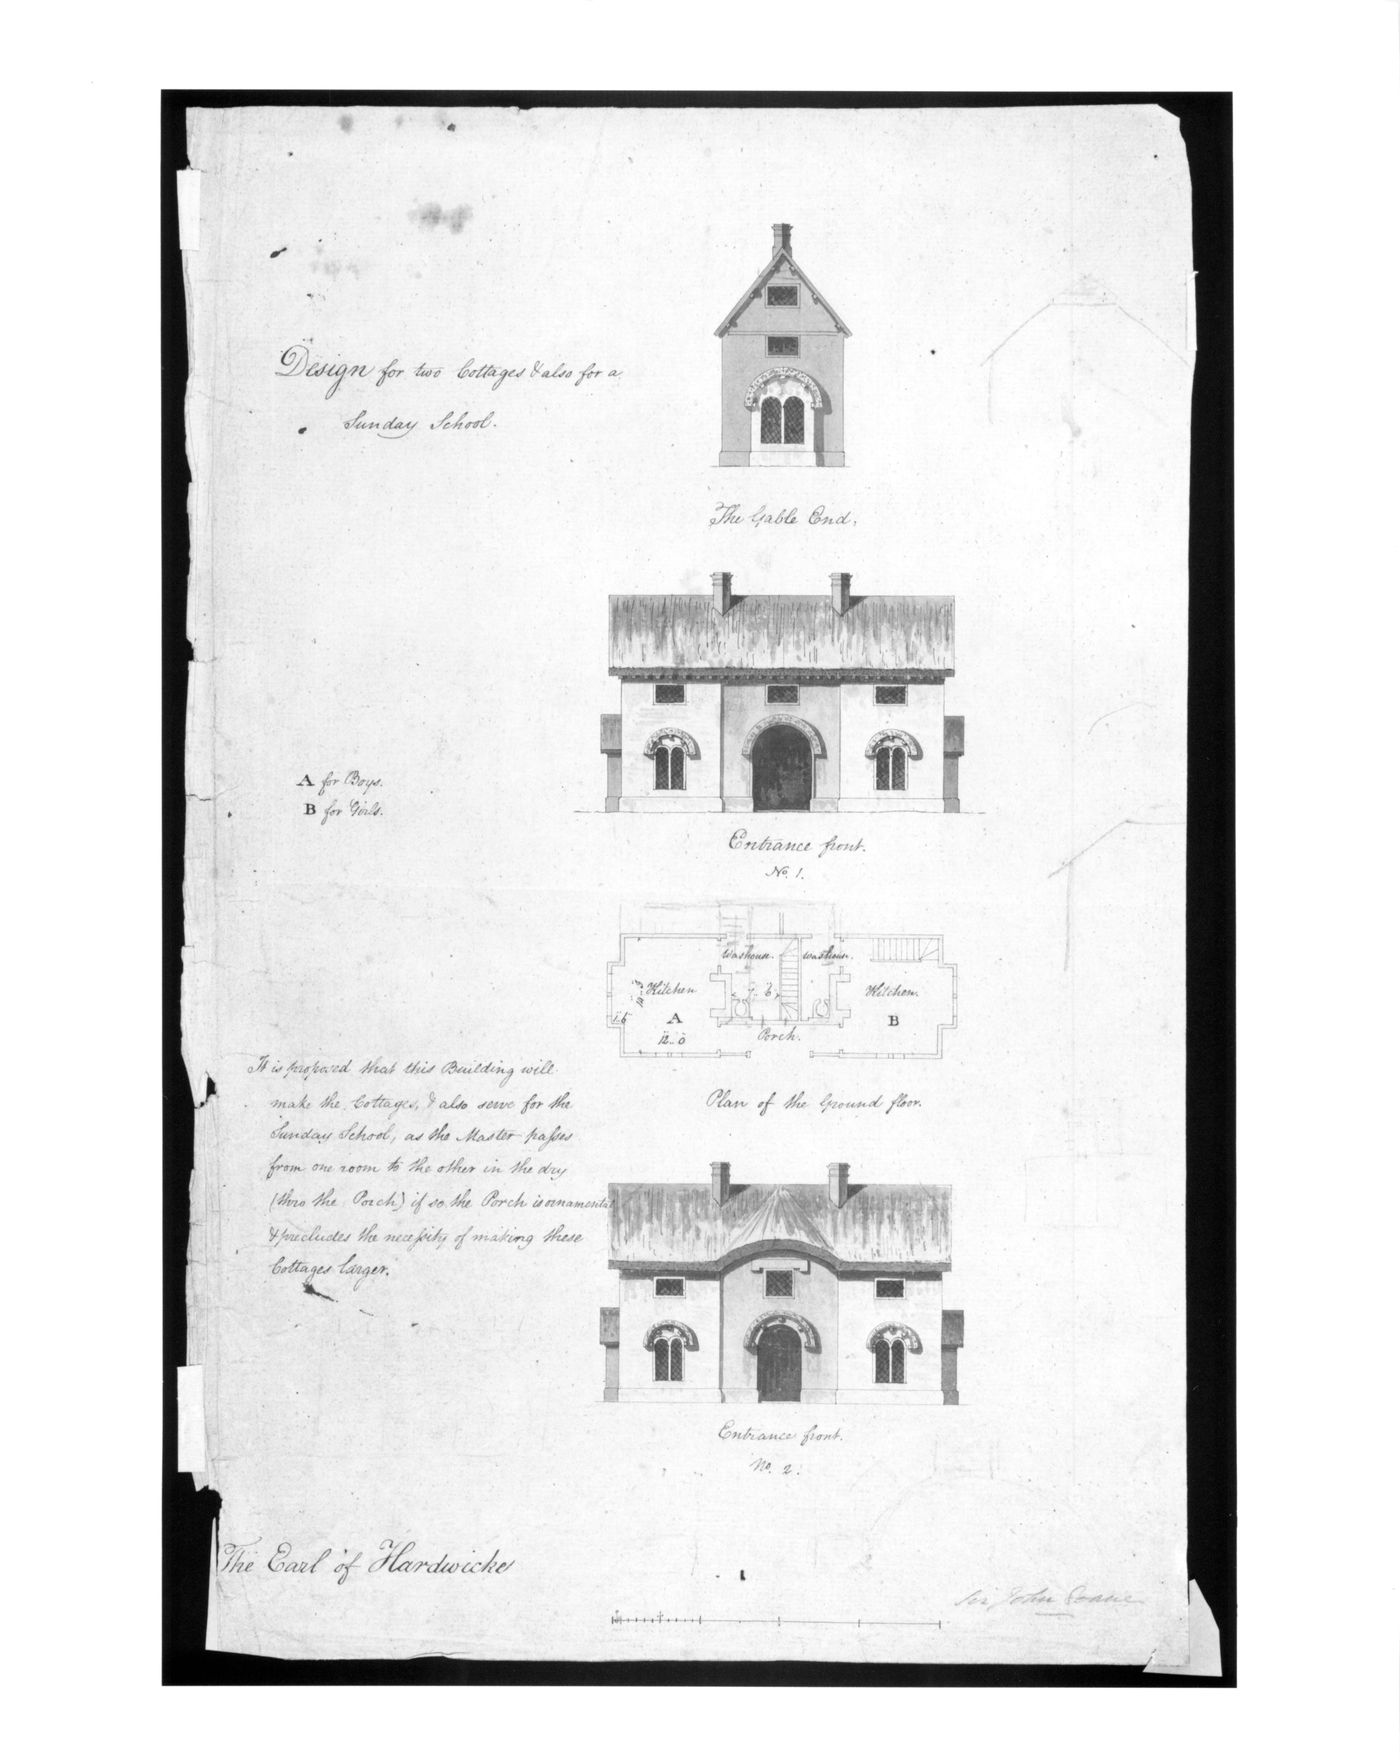 Design for two Cottages & also for a
Sunday School.
The Gable End.
A for Boys.
B for Girls.
Entrance front.
No. 1.
Washouse. Washouse.
Kitchen
A
12..0
7..6
1..6
Porch.
Kitchen.
B
Plan of the Ground floor.
It is proposed that this Building will
make the Cottages, & also serve for the
Sunday School, as the Master passes
from one room to the other in the dry
(thro the Porch) if so, the Porch is ornamental
& precludes the necessity of making these
Cottages larger.
Entrance front.
No. 2.
The Earl of Hardwicke
Sir John Soane